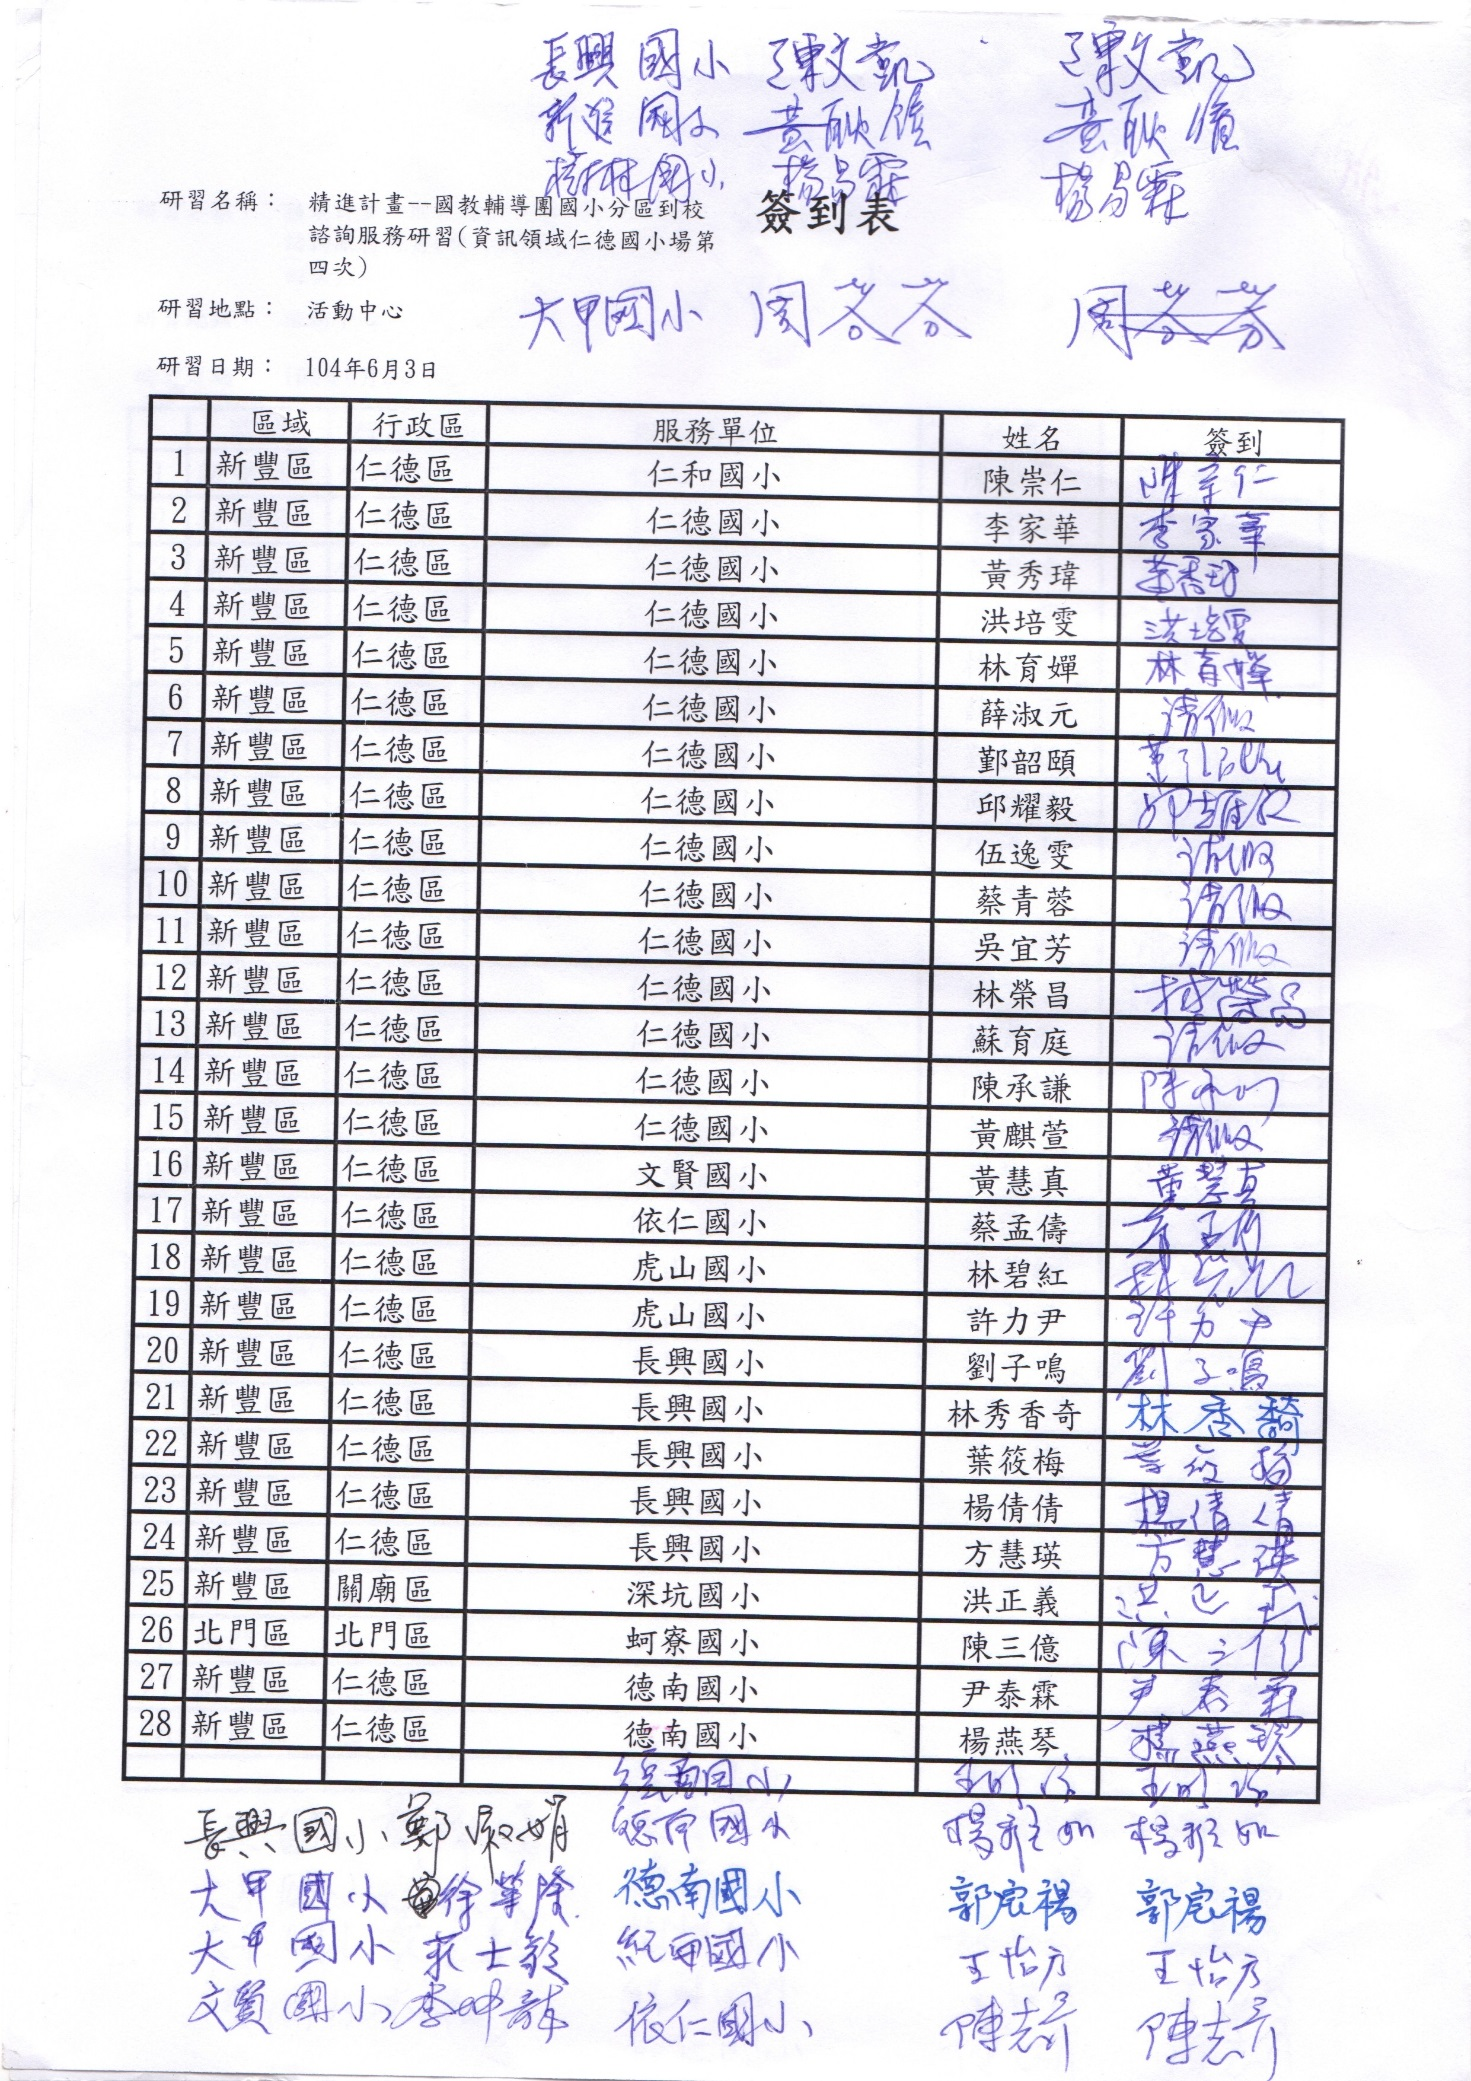 長興國小 陳文凱 陳文凱
新進國小 黃耿 黃耿
國小 楊昌霖 楊昌霖
簽到表
研習名稱： 精進計畫--國教輔導團國小分區到校
諮詢服務研習(資訊領域仁德國小場第
四次)
研習地點： 活動中心 大甲國小 周苓芬 周苓芬
研習日期： 104年6月3日
區域 行政區 服務單位 姓名 簽到
1 新豐區 仁德區 仁和國小 陳崇仁 陳崇仁
2 新豐區 仁德區 仁德國小 李家華 李家華
3 新豐區 仁德區 仁德國小 黃秀瑋 黃秀瑋
4 新豐區 仁德區 仁德國小 洪培雯 洪培雯
5 新豐區 仁德區 仁德國小 林育嬋 林育嬋
6 新豐區 仁德區 仁德國小 薛淑元 請假
7 新豐區 仁德區 仁德國小 鄞韶頤
8 新豐區 仁德區 仁德國小 邱耀毅 邱耀毅
9 新豐區 仁德區 仁德國小 伍逸雯 請假
10 新豐區 仁德區 仁德國小 蔡青蓉 請假
11 新豐區 仁德區 仁德國小 吳宜芳 請假
12 新豐區 仁德區 仁德國小 林榮昌 林榮昌
13 新豐區 仁德區 仁德國小 蘇育庭 請假
14 新豐區 仁德區 仁德國小 陳承謙 陳承謙
15 新豐區 仁德區 仁德國小 黃麒萱 請假
16 新豐區 仁德區 文賢國小 黃慧真 黃慧真
17 新豐區 仁德區 依仁國小 蔡孟儔 蔡孟儔
18 新豐區 仁德區 虎山國小 林碧紅 林碧紅
19 新豐區 仁德區 虎山國小 許力尹 許力尹
20 新豐區 仁德區 長興國小 劉子鳴 劉子鳴
21 新豐區 仁德區 長興國小 林秀香奇 林秀䭲
22 新豐區 仁德區 長興國小 葉筱梅 葉筱梅
23 新豐區 仁德區 長興國小 楊倩倩 楊倩倩
24 新豐區 仁德區 長興國小 方慧瑛 方慧瑛
25 新豐區 關廟區 深坑國小 洪正義 洪正義
26 北門區 北門區 蚵寮國小 陳三億 陳三億
27 新豐區 仁德區 德南國小 尹泰霖 尹泰霖
28 新豐區 仁德區 德南國小 楊燕琴 楊燕琴
德南國小
長興國小 鄭淑娟 德南國小 楊雅如 楊雅如
大甲國小 徐華隆 德南國小 郭宸禓 郭宸禓
大甲國小 士銓 國小 王怡方 王怡方
文賢國小 李坤龍 依仁國小 陳志昇 陳志昇